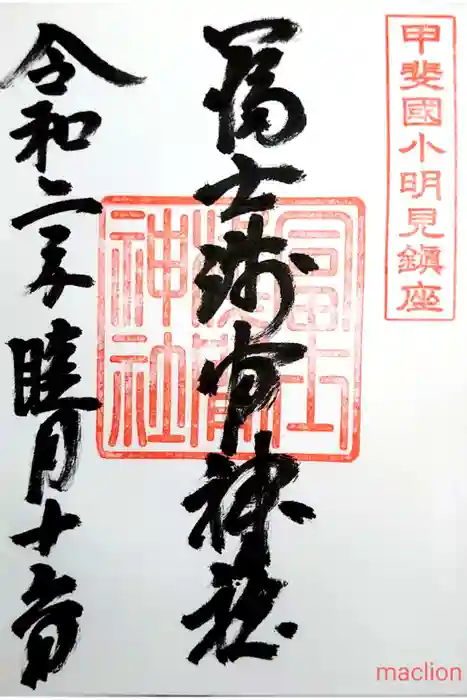 甲斐國小明見鎮座
冨士浅間神社
冨士
淺間
神社
令和二年睦月十日
maclion